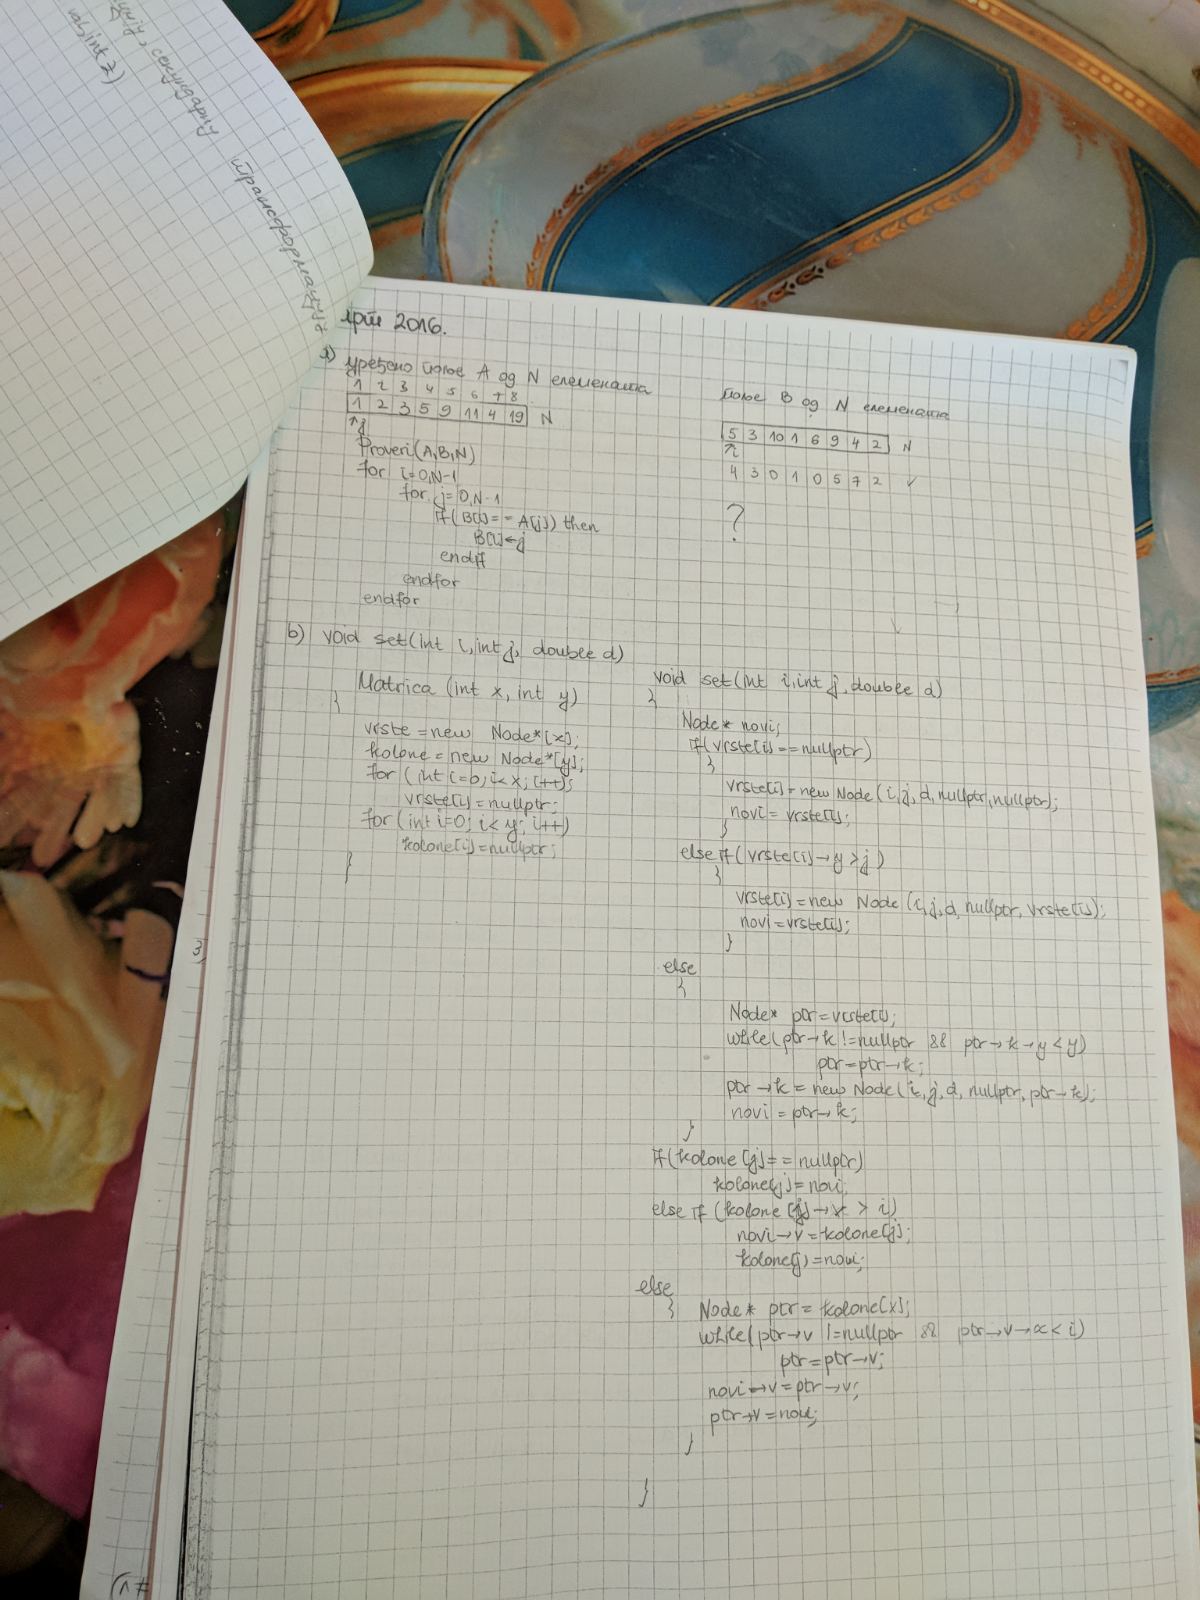 секундарну трансформацију
val, int z)
април 2016.
а) уређено поље A од N елемената
1 2 3 4 5 6 7 8
1 2 3 5 9 11 4 19 N
↑j
Proveri(A,B,N)
for i=0,N-1
for j=0,N-1
if(B[i]==A[j]) then
B[i]←j
endif
endfor
endfor
поље B од N елемената
5 3 10 1 6 9 4 2 N
↑i
4 3 0 1 0 5 7 2 ✓
?
b) void set(int i, int j, double d)
Matrica (int x, int y)
{
vrste = new Node*[x];
kolone = new Node*[y];
for (int i=0; i<x; i++);
vrste[i]=nullptr;
for (int i=0; i<y; i++)
kolone[i]=nullptr;
}
void set(int i, int j, double d)
{
Node* novi;
if(vrste[i]==nullptr)
{
vrste[i]=new Node(i,j,d,nullptr,nullptr);
novi=vrste[i];
}
else if(vrste[i]→y>j)
{
vrste[i]=new Node(i,j,d,nullptr,vrste[i]);
novi=vrste[i];
}
else
{
Node* ptr=vrste[i];
while(ptr→k!=nullptr && ptr→k→y<y)
ptr=ptr→k;
ptr→k=new Node(i,j,d,nullptr,ptr→k);
novi=ptr→k;
}
if(kolone[j]==nullptr)
kolone[j]=novi;
else if (kolone[j]→x > i)
novi→v=kolone[j];
kolone[j]=novi;
else
{ Node* ptr=kolone[x];
while(ptr→v!=nullptr && ptr→v→x<i)
ptr=ptr→v;
novi→v=ptr→v;
ptr→v=novi;
}
}
3)